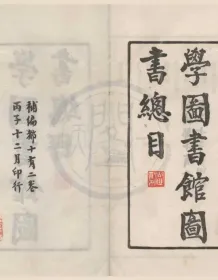 學圖書館圖
書總目
補編部十有二卷
丙子十二月印行